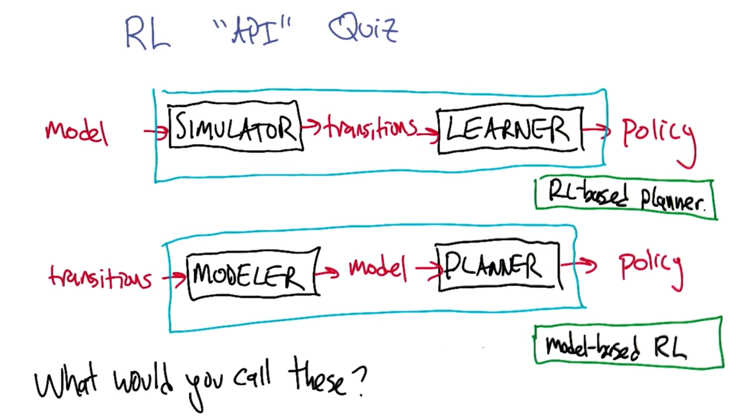 RL "API" Quiz
model → SIMULATOR → transitions → LEARNER → policy
RL-based planner.
transitions → MODELER → model → PLANNER → policy
model-based RL
What would you call these?